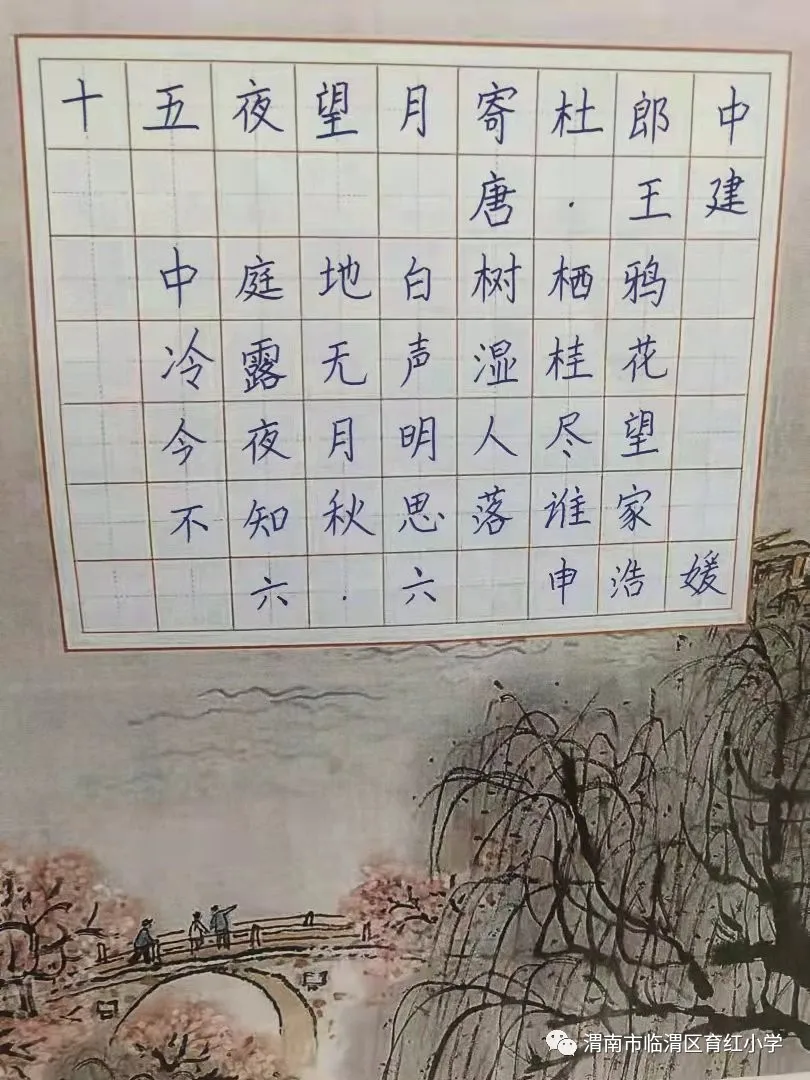 十五夜望月寄杜郎中
唐·王建
中庭地白树栖鸦
冷露无声湿桂花
今夜月明人尽望
不知秋思落谁家
六·六 申浩媛
渭南市临渭区育红小学